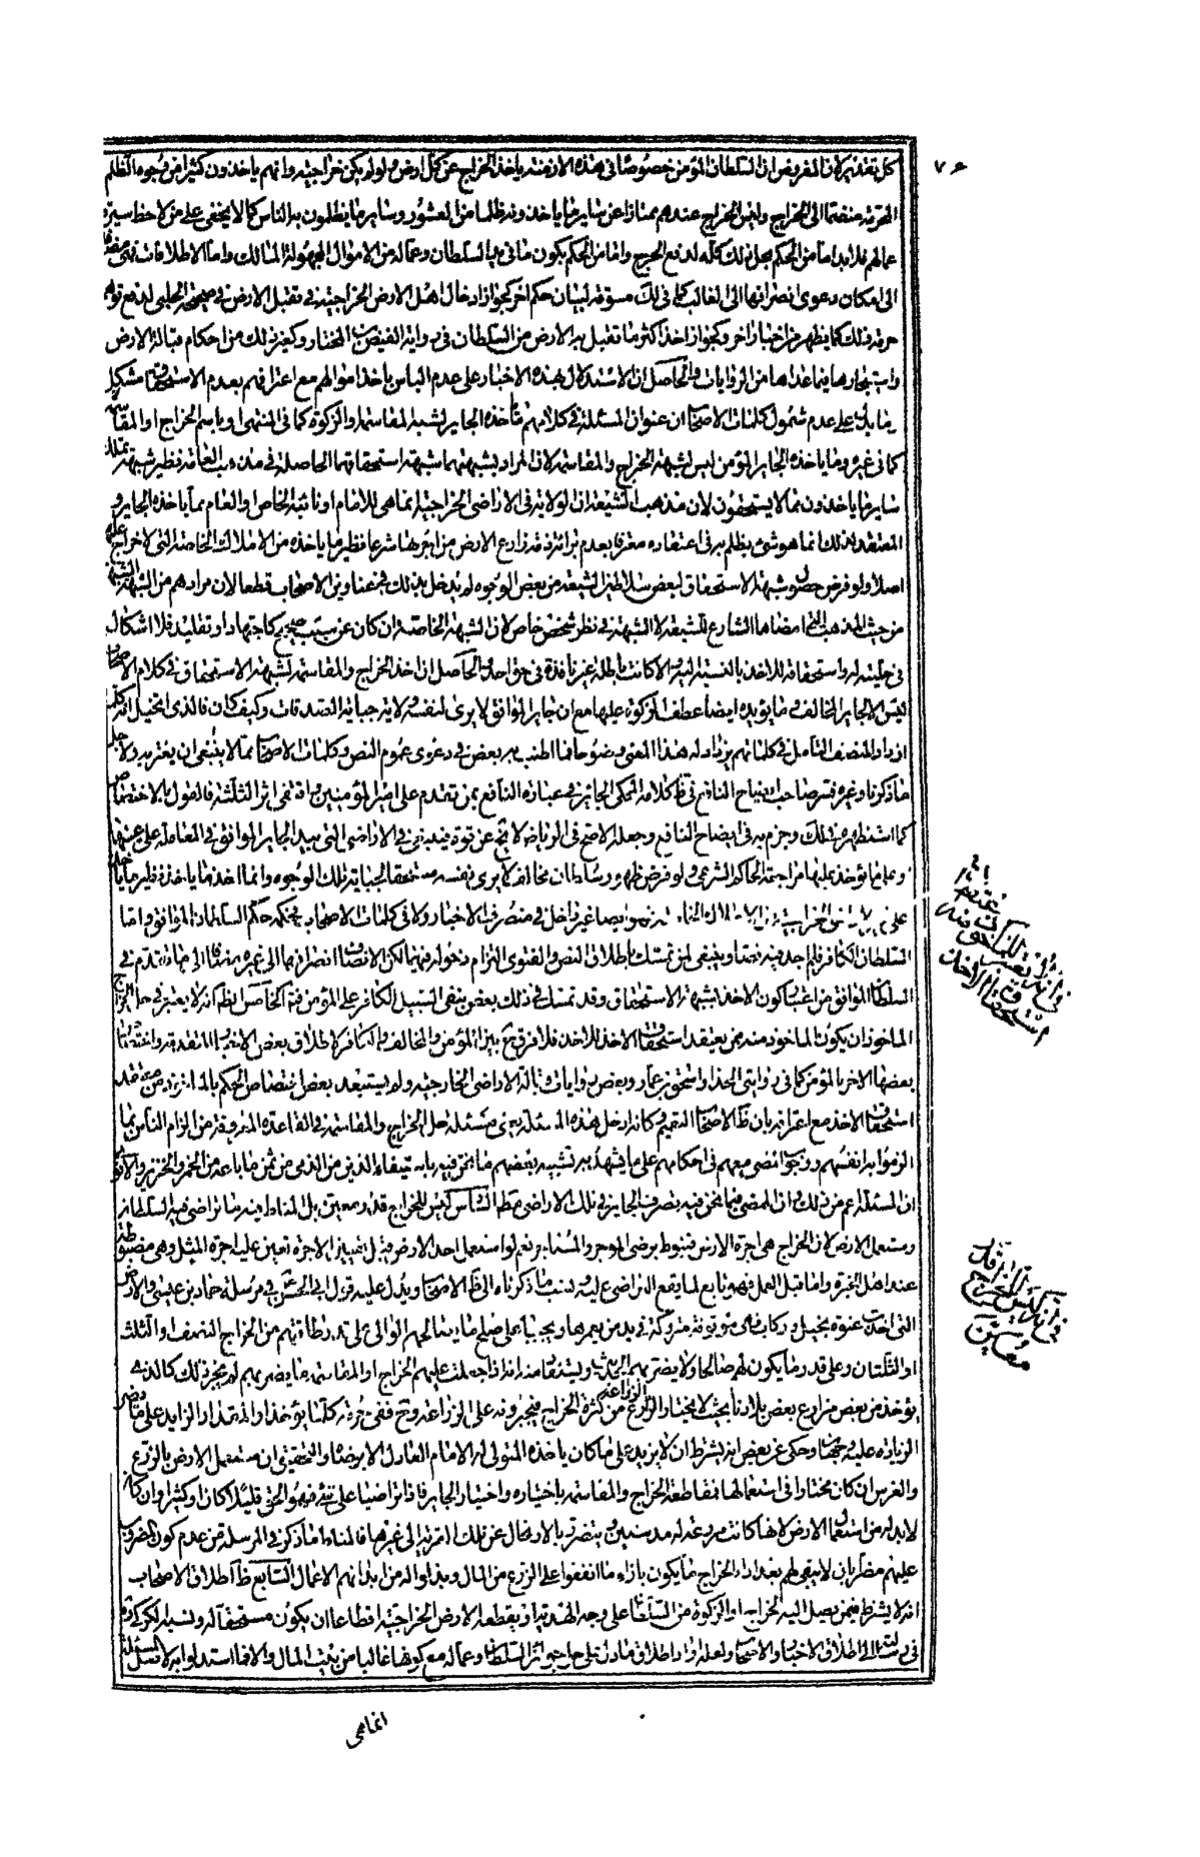 كل تقدير لان المفروض ان السلطان المؤمن خصوصا فى هذه الازمنة ياخذ الخراج عن كل ارض ولو لم يكن خراجية وانهم ياخذون كثيرا من وجوه الظلم
المحرمة منضما الى الخراج وليس الخراج عندهم ممتازا عن ساير ما ياخذونه ظلما من العشور وساير ما يظلمون به الناس كما لا يخفى على من لاحظ سيرة
عمالهم فلا بد اما من الحكم بحل ذلك كله لدفع الحرج واما من الحكم بكون ما فى يد السلطان وعماله من الاموال المجهولة المالك واما الاطلاقات فهى مضافا
الى امكان دعوى انصرافها الى الغالب كما فى لك مسوقة لبيان حكم اخر كجواز ادخال اهل الارض الخراجية فى تقبل الارض فى صحيحة الحلبى لدفع توهم
حرمة ذلك كما يظهر من اخبار اخر وكجواز اخذ اكثر ما تقبل به الارض من السلطان فى رواية الفيض بن المختار وكغير ذلك من احكام قبالة الارض
واستيجارها فيما عداها من الروايات والحاصل ان الاستدلال بهذه الاخبار على عدم الباس باخذ اموالهم مع اعترافهم بعدم الاستحقاق مشكل
مما يدل على عدم شمول كلمات الاصحاب ان عنوان المسئلة فى كلامهم ما ياخذه الجاير لشبهة المقاسمة والزكوة كما فى المنتهى او باسم الخراج او المقاسمة
كما فى غيره وما ياخذه الجاير المؤمن ليس لشبهة الخراج والمقاسمة لان المراد بشبهتهما شبهة استحقاقهما الحاصلة فى مذهب العامة نظير شبهة تملك
ساير ما ياخذون مما لا يستحقون لان مذهب الشيعة ان الولاية فى الاراضى الخراجية انما هى للامام او نائبه الخاص او العام فما ياخذه الجاير
المعتقد لذلك انما هو شئ يظلم به فى اعتقاده معترفا بعدم براءة ذمة زارع الارض من اجرتها شرعا نظير ما ياخذه من الاملاك الخاصة التى لا خراج عليها
اصلا ولو فرض حصول شبهة الاستحقاق لبعض سلاطين الشيعة من بعض الوجوه لم يدخل بذلك فى عناوين الاصحاب قطعا لان مرادهم من الشبهة الشبهة
من حيث المذهب التى امضاها الشارع للشيعة لا الشبهة فى نظر شخص خاص لان الشبهة الخاصة ان كان عن سبب صحيح كاجتهاد او تقليد فلا اشكال
فى حليته له واستحقاقه للاخذ بالنسبة اليه والا كانت باطلة غير نافذة فى حق احد والحاصل ان اخذ الخراج والمقاسمة لشبهة الاستحقاق فى كلام الاصحاب
ليس الا الجاير المخالف ومما يؤيده ايضا عطف الزكوة عليها مع ان الجاير الموافق لا يرى لنفسه ولاية جباية الصدقات وكيف كان فالذى اتخيل انه كلما
ازداد المنصف التامل فى كلماتهم يزداد له هذا المعنى وضوحا فما اطنب به بعض فى دعوى عموم النص وكلمات الاصحاب مما لا ينبغى ان يغتر به ولاجل
ما ذكرنا وغيره فسر صاحب ايضاح النافع فى ظ كلامه المحكى الجاير فى عبارة النافع بمن تقدم على امير المؤمنين واقتفى اثر الثلثة فالقول بالاختصاص
كما استظهره فى لك وجزم به فى ايضاح النافع وجعله الاصح فى الرياض لا يخ عن قوة
السلطان الكافر فلم اجد فيه نصا وينبغى لمن تمسك باطلاق النص والفتوى التزام دخوله فيهما لكن الانصاف انصرافهما الى غيره مضافا الى ما تقدم فى
السلطان الموافق من اعتبار كون الاخذ بشبهة الاستحقاق وقد تمسك فى ذلك بعض بنفى السبيل للكافر على المؤمن الخامس الظ انه لا يعتبر فى حل الخراج
الماخوذ ان يكون الماخوذ منه ممن يعتقد استحقاق الاخذ للاخذ فلا فرق ح بين المؤمن والمخالف والكافر لاطلاق بعض الاخبار المتقدمة واختصاص
بعضها الاخر بالمؤمن كما فى روايتى الحذاء واسحق بن عمار وبعض روايات قبالة الاراضى الخراجية ولم يستبعد بعض اختصاص الحكم بالماخوذ من معتقد
استحقاق الاخذ مع اعترافه بان ظ الاصحاب التعميم وكانه ادخل هذه المسئلة يعنى مسئلة حل الخراج والمقاسمة فى القاعدة المعروفة من الزام الناس بما
الزموا به انفسهم ووجوب المضى معهم فى احكامهم على ما يشهد به تشبيه بعضهم ما نحن فيه باستيفاء الدين من الذمى من ثمن ما باعه من الخمر والخنزير والاقوى
ان المسئلة اعم من ذلك وان الممضى فيما نحن فيه تصرف الجاير فى تلك الاراضى مطلقا السادس ليس للخراج قدر معين بل المناط فيه ما تراضى فيه السلطان
ومستعمل الارض لان الخراج هى اجرة الارض فينوط برضى الموجر والمستاجر نعم لو استعمل احد الارض قبل تعيين الاجرة تعين عليه اجرة المثل وهى مضبوطة
عند اهل الخبرة واما قبل العمل فهو تابع لما يقع التراضى عليه ونسب ما ذكرناه الى ظ الاصحاب ويدل عليه قول ابى الحسن فى مرسلة حماد بن عيسى والارض
التى اخذت عنوة بخيل وركاب فهى موقوفة متروكة فى يد من يعمرها ويحييها على صلح ما يصالحهم الوالى على قدر طاقتهم من الخراج النصف او الثلث
او الثلثان وعلى قدر ما يكون لهم صالحا ولا يضر بهم الحديث ويستفاد منه انه اذا جعلت عليهم الخراج او المقاسمة ما يضر بهم لم يجز ذلك كالذى
يؤخذ من بعض مزارع بعض بلادنا بحيث لا يختار الزارع الزراعة من كثرة الخراج فيجبرونه على الزراعة وح ففى حرمة كلما يؤخذ او المقدار الزايد على ما تضر
الزيادة عليه وجهان وحكى عن بعض انه يشترط ان لا يزيد على ما كان ياخذه المتولى له الامام العادل الا برضاه والتحقيق ان مستعمل الارض بالزرع
والغرس ان كان مختارا فى استعمالها فمقاطعة الخراج والمقاسمة باختياره واختيار الجاير فاذا تراضيا على شئ فهو الحق قليلا كان او كثيرا وان كان
لا بد له من استعمال الارض لانها كانت مزرعة له مدة سنين ويتضرر بالارتحال عن تلك القرية الى غيرها فالمناط ما ذكر فى المرسلة من عدم كون المضروب
عليهم مضرا بان لا يبقى لهم بعد اداء الخراج ما يكون بازاء ما انفقوا على الزرع من المال وبذلوا له من ابدانهم الاعمال السابع ظ اطلاق الاصحاب
انه لا يشترط فيمن يصل اليه الخراج او الزكوة من السلطان على وجه الهدية او يقطعه الارض الخراجية اقطاعا ان يكون مستحقا له ونسبه الكركى ره
فى رسالته الى اطلاق الاخبار والاصحاب ولعله اراد اطلاق ما دل على حل جوائز السلطان وعماله مع كونها غالبا من بيت المال والا فما استدلوا به لاصل المسئلة
انما هى